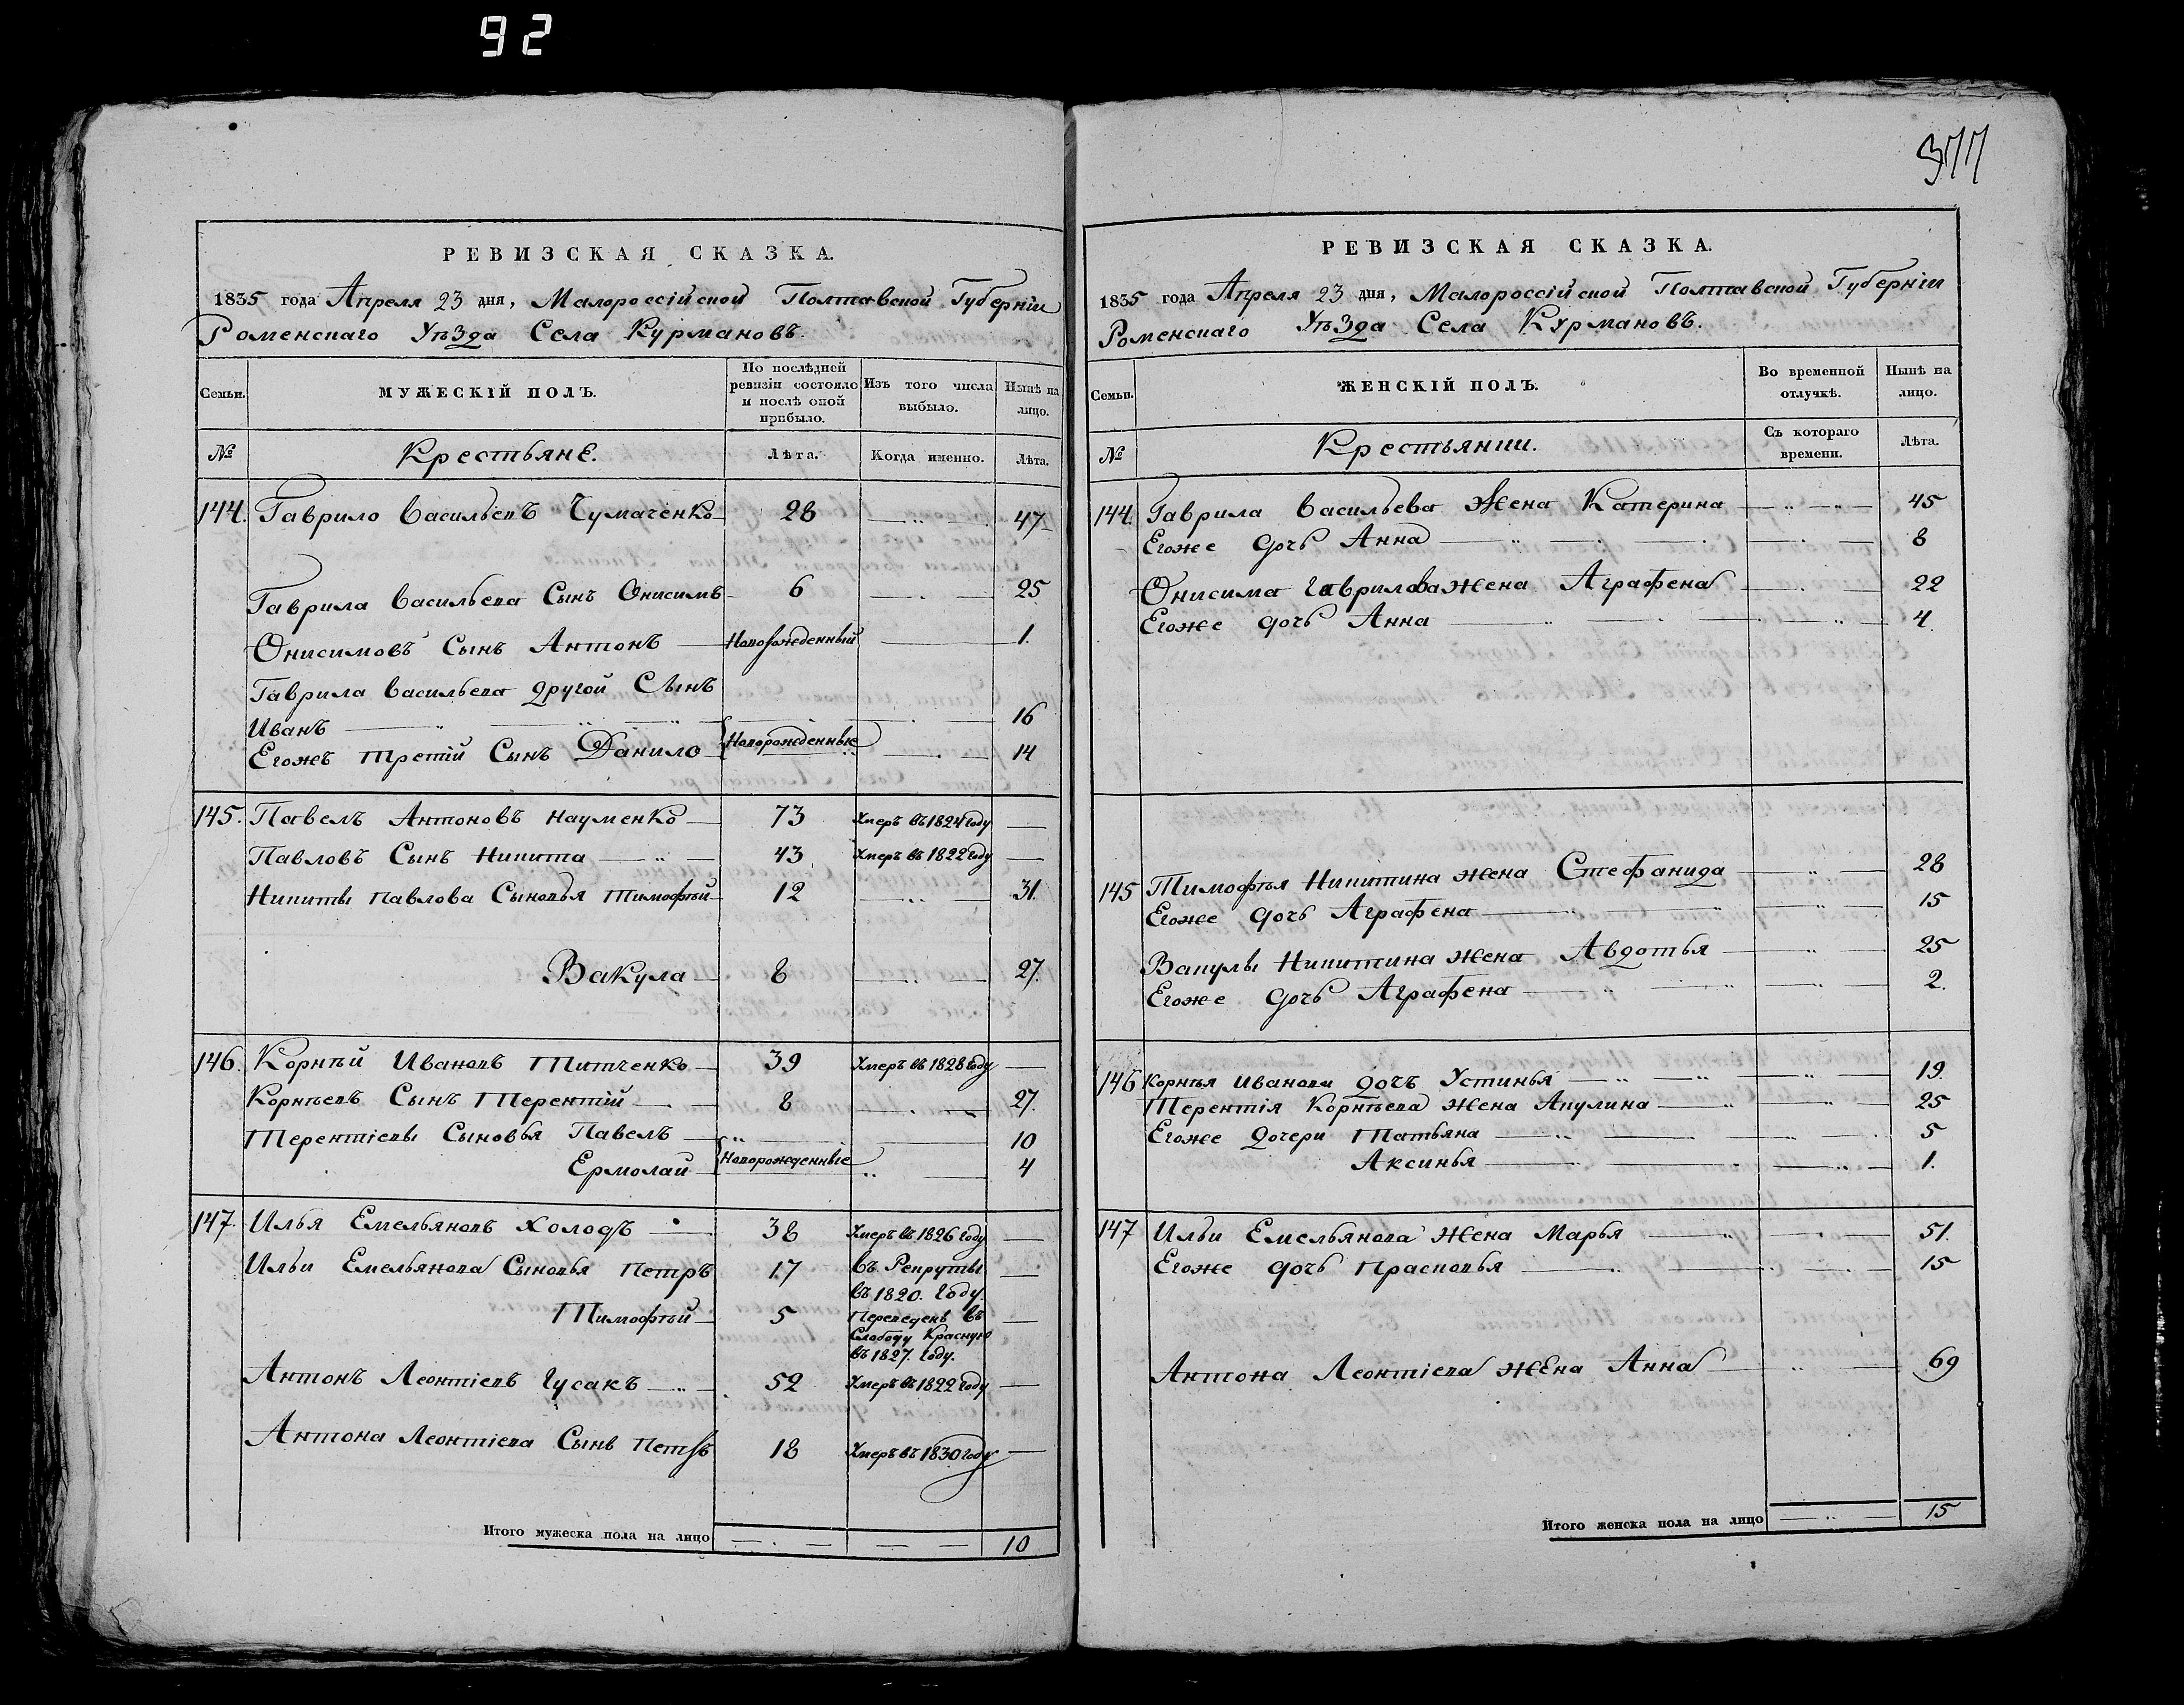 92
977
РЕВИЗСКАЯ СКАЗКА.
1835 года Апреля 23 дня, Малороссійской Полтавской Губерніи
Роменскаго Уѣзда Села Курмановъ.
Семьи. МУЖЕСКІЙ ПОЛЪ. По послѣдней ревизіи состояло и послѣ оной прибыло. Изъ того числа выбыло. Нынѣ на лицо.
№ Крестьяне. Лѣта. Когда именно. Лѣта.
144. Гаврило Васильевъ Чумаченко 28 47
Гаврила Васильева Сынъ Онисимъ 6 25
Онисимовъ Сынъ Антонъ Новорожденный 1.
Гаврила Васильева другой Сынъ
Иванъ 16
Егожъ третій Сынъ Данило Новорожденные 14
145. Павелъ Антоновъ Науменко 73 Умеръ въ 1824 году
Павловъ Сынъ Никита 43 Умеръ въ 1822 году
Никиты Павлова Сыновья Тимофѣй 12 31.
Вакула 8 27.
146. Корнѣй Ивановъ Титченко 39 Умеръ въ 1828 году
Корнѣевъ Сынъ Терентій 8 27.
Терентіевы Сыновья Павелъ 10
Ермолай Новорожденные 4
147. Илья Емельяновъ Холодъ 38 Умеръ въ 1826 году
Ильи Емельянова Сыновья Петръ 17 Въ Рекруты
въ 1820. Году.
Тимофѣй 5 Переведенъ въ
Слободу Красную
въ 1827. Году.
Антонъ Леонтіевъ Гусакъ 52 Умеръ въ 1822 году
Антона Леонтіева Сынъ Петръ 18 Умеръ въ 1830 году
Итого мужеска пола на лицо 10
РЕВИЗСКАЯ СКАЗКА.
1835 года Апреля 23 дня, Малороссійской Полтавской Губерніи
Роменскаго Уѣзда Села Курмановъ.
Семьи. ЖЕНСКІЙ ПОЛЪ. Во временной отлучкѣ. Нынѣ на лицо.
№ Крестьянки. Съ котораго времени. Лѣта.
144. Гаврила Васильева Жена Катерина 45
Егоже дочь Анна 8
Онисима Гаврилова жена Аграфена 22
Егоже дочь Анна 4.
145 Тимофѣя Никитина жена Стефанида 28
Егоже дочь Аграфена 15
Вакулы Никитина жена Авдотья 25
Егоже дочь Аграфена 2.
146 Корнѣя Иванова дочь Устинья 19.
Терентія Корнѣева Жена Акулина 25
Егоже Дочери Татьяна 5
Аксинья 1.
147 Ильи Емельянова Жена Марья 51.
Егоже дочь Прасковья 15
Антона Леонтіева жена Анна 69
Итого женска пола на лицо 15